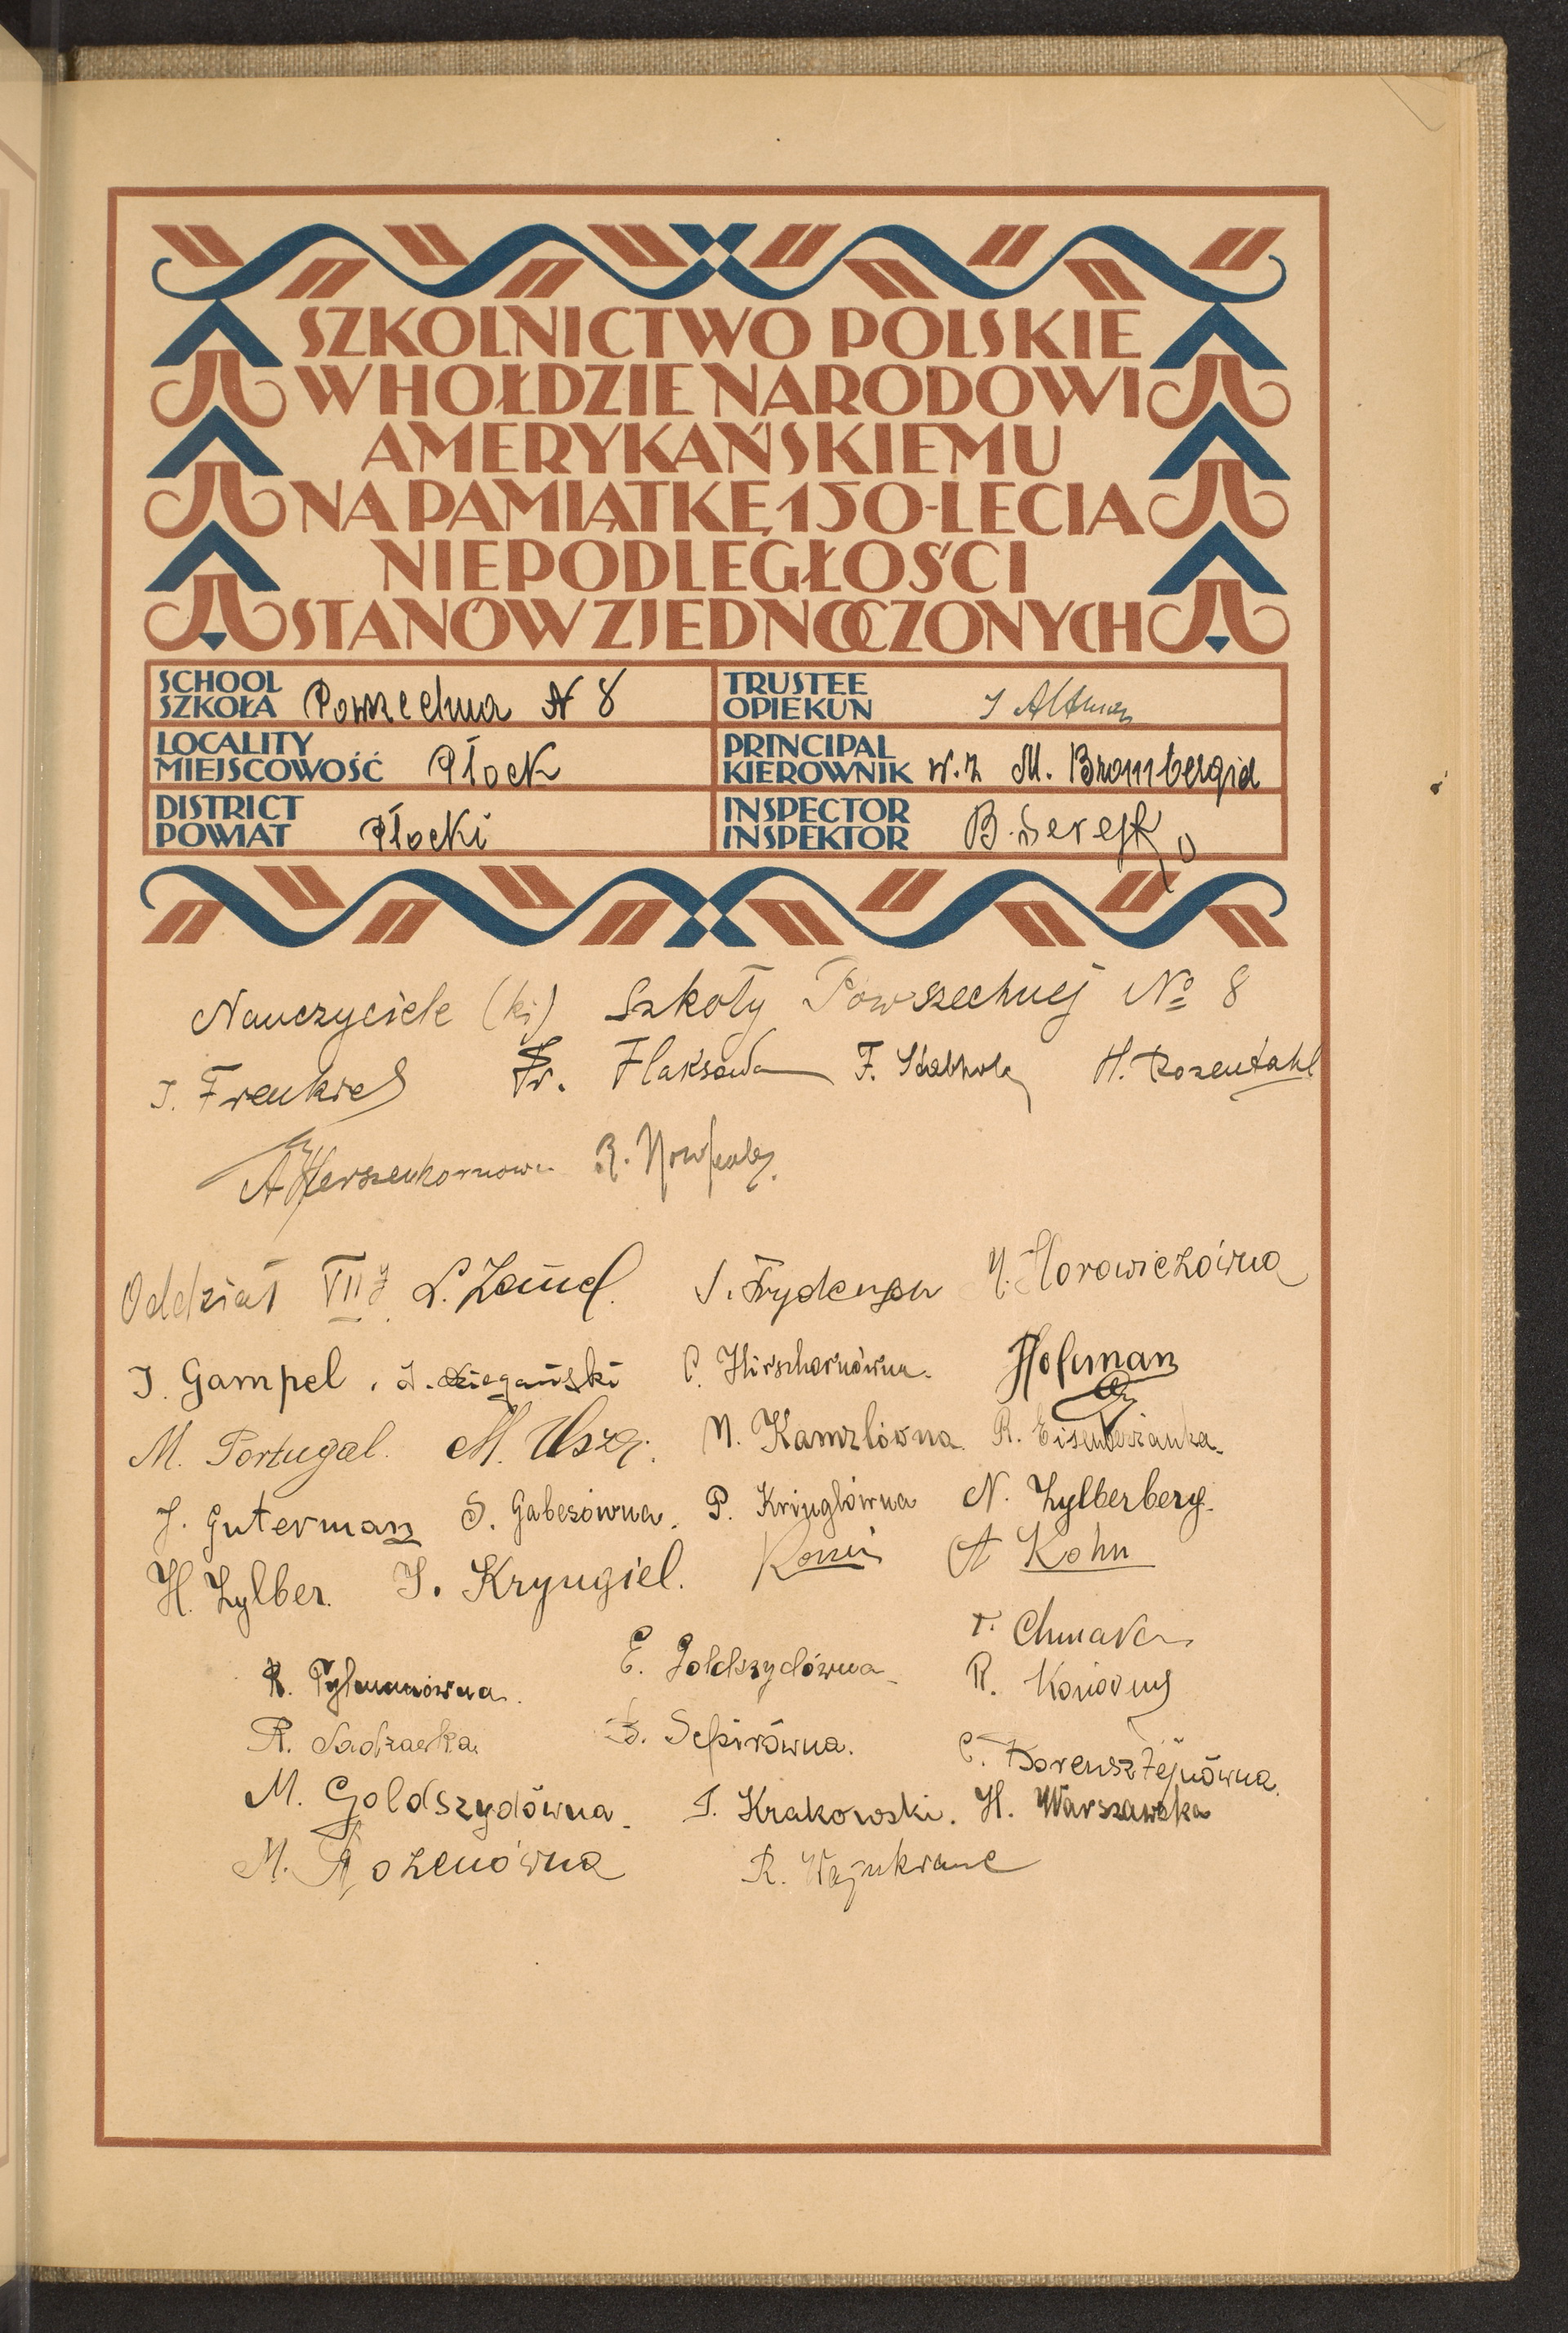 SZKOLNICTWO POLSKIE
W HOŁDZIE NARODOWI
AMERYKAŃSKIEMU
NA PAMIĄTKĘ 150-LECIA
NIEPODLEGŁOŚCI
STANÓW ZJEDNOCZONYCH
SCHOOL SZKOŁA Powszechna N 8
TRUSTEE OPIEKUN J Altman
LOCALITY MIEJSCOWOŚĆ Płock
PRINCIPAL KIEROWNIK w.z M. Brombergid
DISTRICT POWIAT Płocki
INSPECTOR INSPEKTOR B. Serejko
Nauczyciele (ki) Szkoły Powszechnej № 8
J. Frenkiel Fr. Flaksowa F. H. Rozentahl
A Herszenkornowa R.
Oddział VII L. J. Frydenzon M. Horowiczówna
J. Gampel. Hofman
M. Portugal. M. N. Kamzlówna R.
J. Guterman S. Gabesówna. P. Kringlówna N. Zylberberg.
H. Zylber. J. Kryngiel. A Kohn
R. E. Goldszydówna
R. Sadzawka. B. Sepirówna. C. Borensztejnówna.
M. Goldszydówna. J. Krakowski. H. Warszawska
M. Rozenówna R.